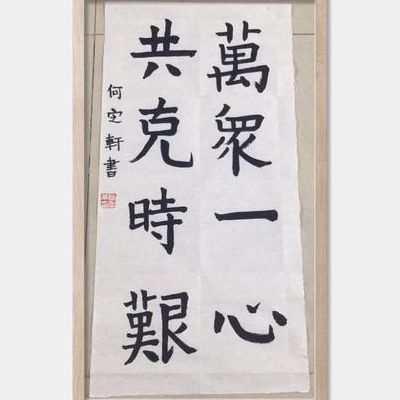 萬眾一心
共克時艱
何定軒書